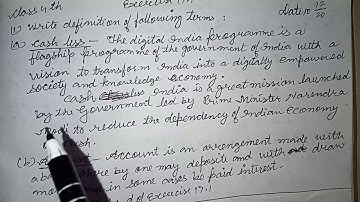 Class 4th Exercise 17.1 Date 12/20
(1) Write definition of following terms :
(a) Cash less :- The digital India programme is a
flagship programme of the government of India with a
vision to transform India into a digitally empowered
society and knowledge economy.
Cash less India is a great mission launched
by the Government led by Prime Minister Narendra
to reduce the dependency of Indian economy
cash.
(b) Account is an arrangement made with
a where by one may deposit and with draw
mo in some cases be paid interest.
d of Exercise 17.1